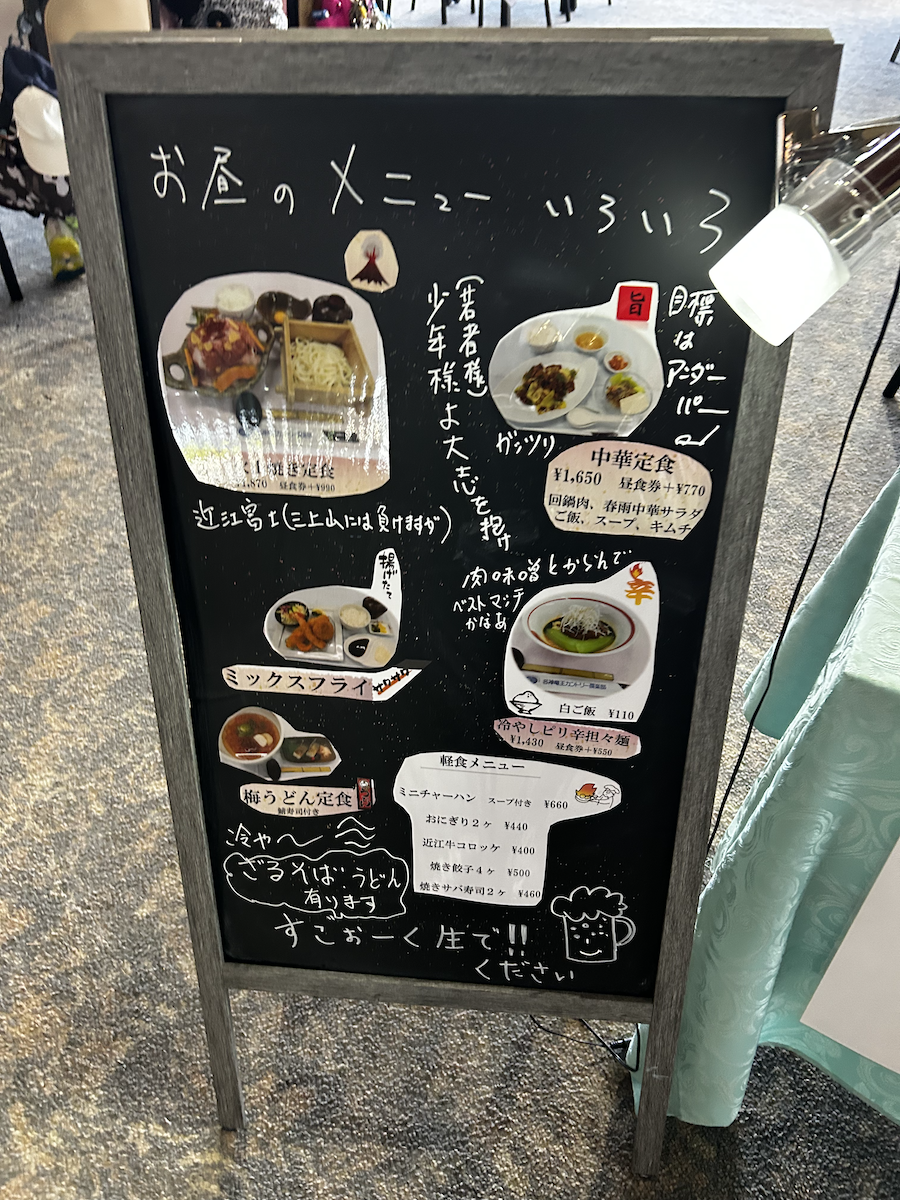 お昼のメニュー いろいろ
き定食
¥1,870 昼食券+¥990
近江富士(三上山には負けますが)
(若者様)
少年様よ大志を抱け
旨
目標は
アンダー
パー
ガッツリ
中華定食
¥1,650 昼食券+¥770
回鍋肉、春雨中華サラダ
ご飯、スープ、キムチ
揚げたて
ミックスフライ
サクサク
肉味噌とからんで
ベストマッチ
かなあ
辛
名神竜王カントリー倶楽部
白ご飯 ¥110
冷やしピリ辛担々麺
¥1,430 昼食券+¥550
梅うどん定食
鯖寿司付き
冷や〜
ざるそば・うどん
有ります
軽食メニュー
ミニチャーハン スープ付き ¥660
おにぎり2ヶ ¥440
近江牛コロッケ ¥400
焼き餃子4ヶ ¥500
焼きサバ寿司2ヶ ¥460
すごぉーく生で!!
ください